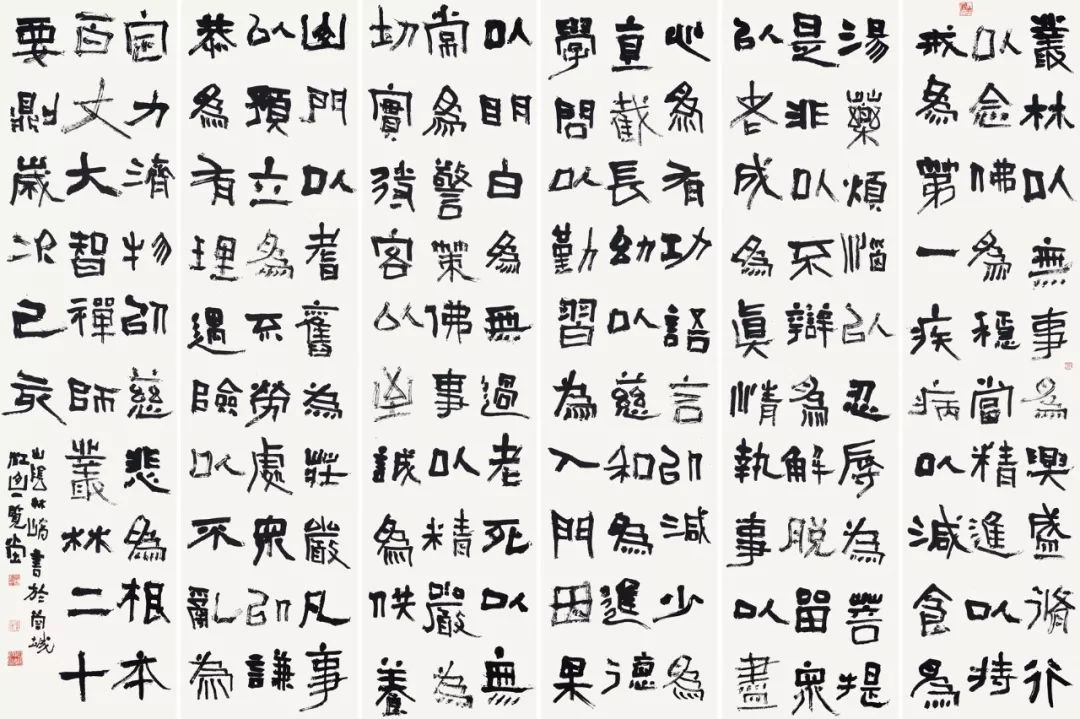 叢林以無事為興盛脩行
以念佛為穩當精進以持
戒為第一疾病以減食為
湯藥煩惱以忍辱為菩提
是非以不辯為解脫留眾
以老成為真情執事以盡
心為有功語言以減少為
直截長幼以慈和為進德
學問以勤習為入門因果
以明白為無過老死以無
常為警策佛事以精嚴為
切實待客以至誠為供養
山門以耆舊為莊嚴凡事
以預立為不勞處眾以謙
恭為有理遇險以不亂為
定力濟物以慈悲為根本
百丈大智禪師叢林二十
要則歲次己亥
書於南城
一覽堂